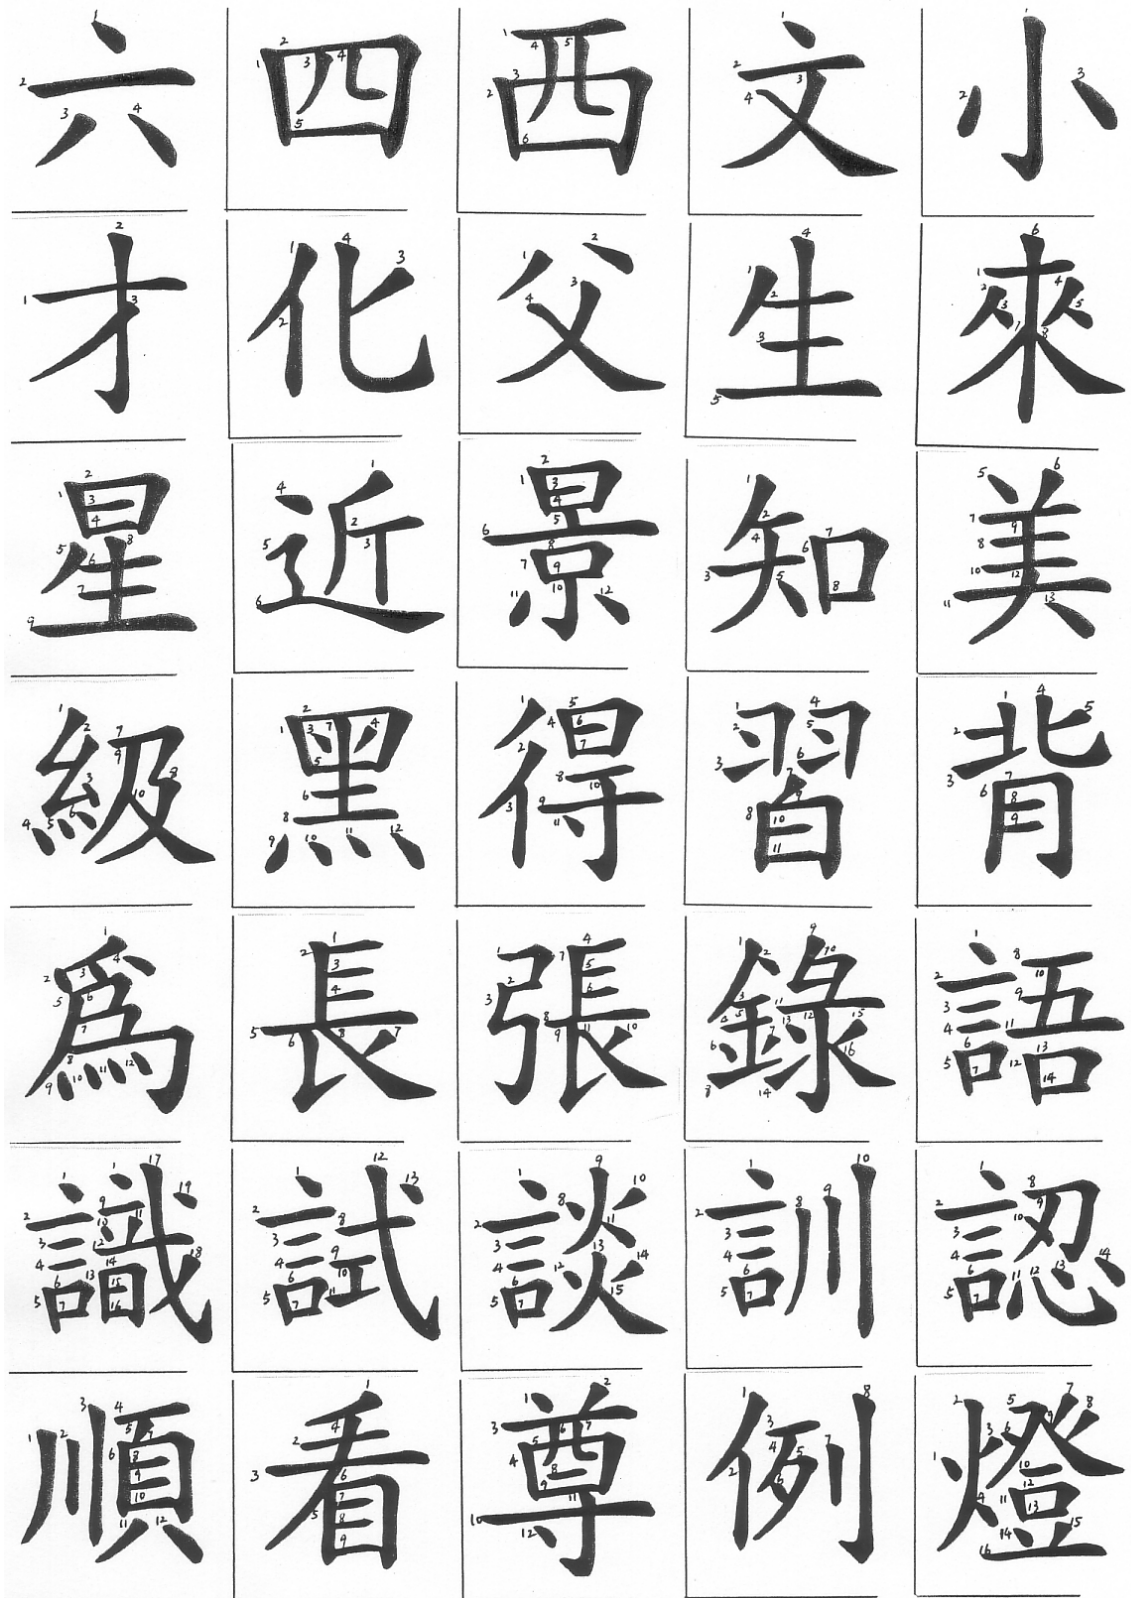 六 四 西 文 小
才 化 父 生 來
星 近 景 知 美
級 黑 得 習 背
爲 長 張 錄 語
識 試 談 訓 認
順 看 尊 例 燈